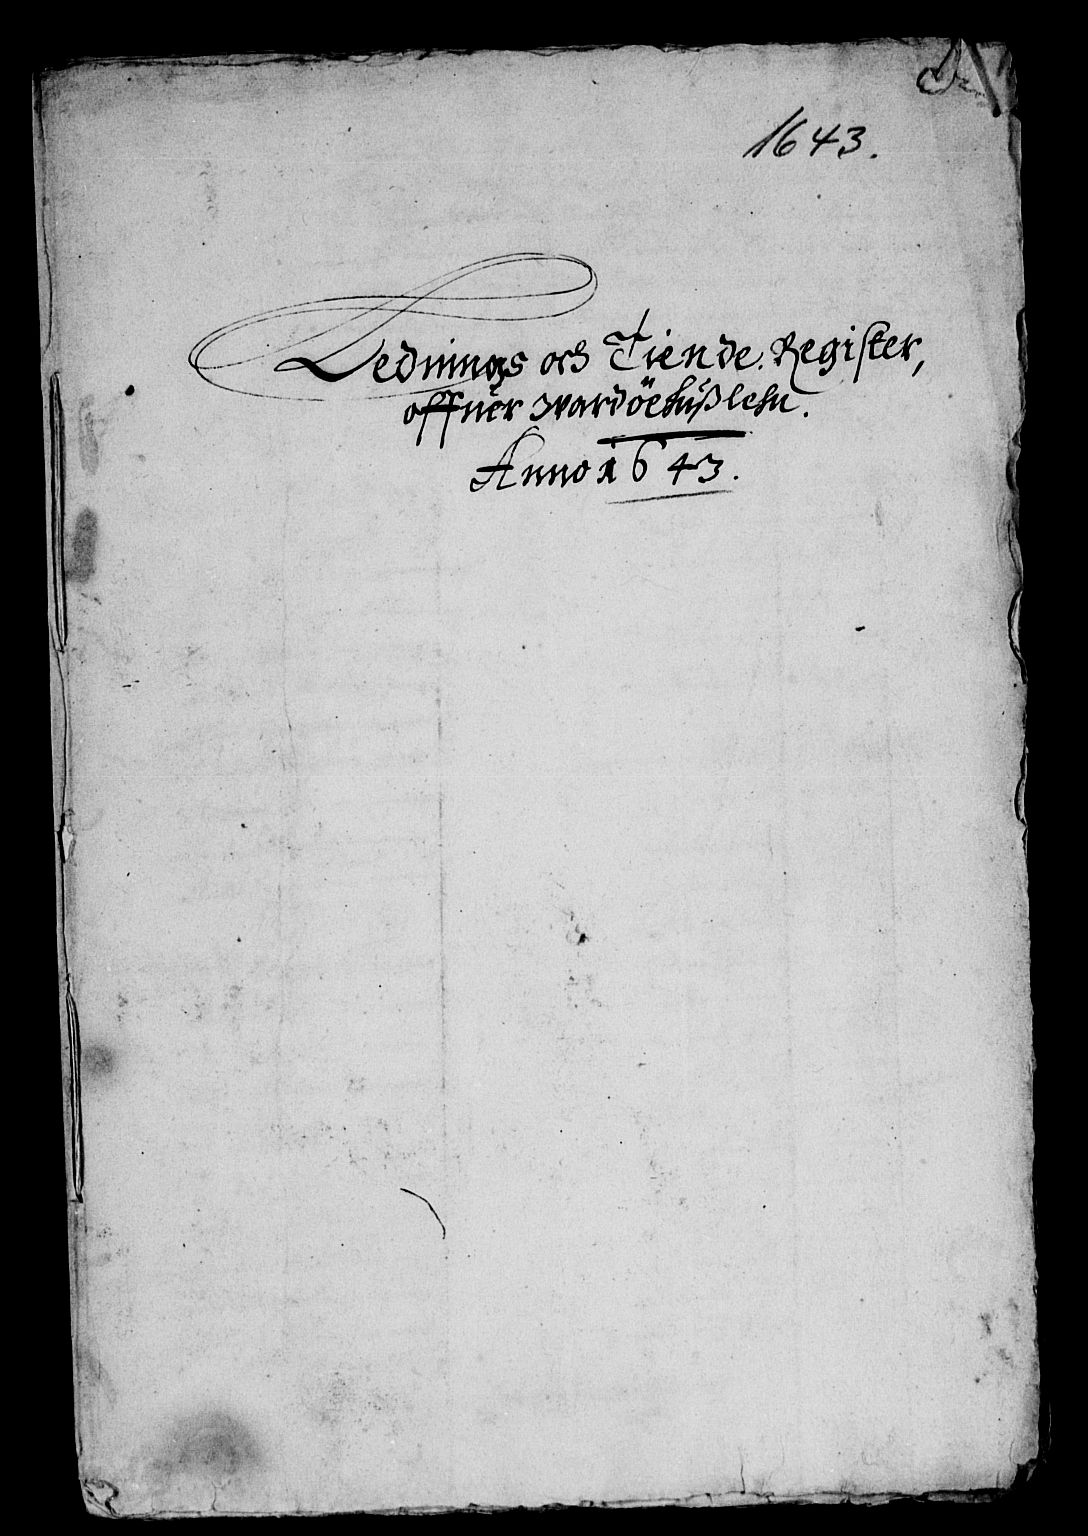 1643.
Lednings och Tiende. Register,
offuer Wardöehußlehn.
Anno 1643.